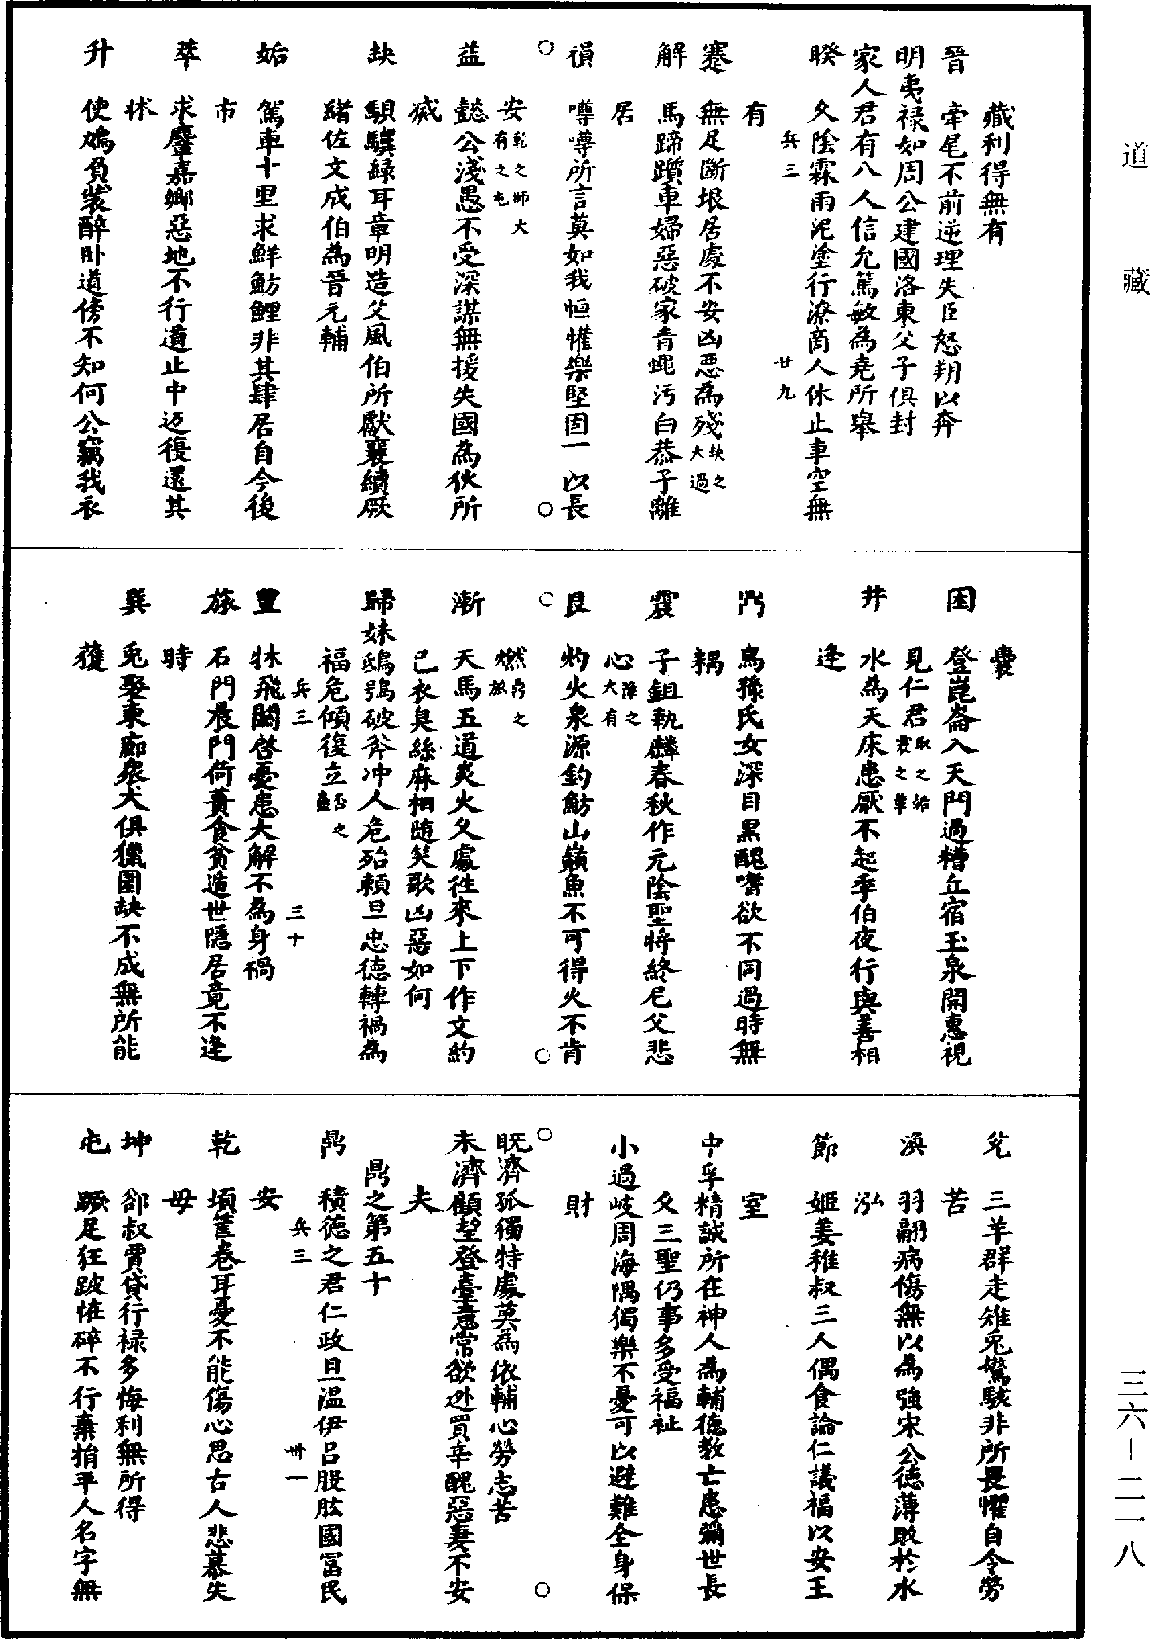 道藏
藏利得無有
晉　牽尾不前逆理失臣怒朔以奔
明夷祿如周公建國洛東父子俱封
家人君有八人信允篤敏為堯所舉
睽　久陰霖雨泥塗行潦商人休止車空無
有
兵三　廿九
蹇　無足斷垠居處不安凶惡為殘缺之大過
解　馬蹄躓車婦惡破家青蠅污白恭子離
居
損　噂噂所言莫如我恒懽樂堅固一以長
安乾之師大有之屯
益　懿公淺愚不受深謀無援失國為伙所
滅
缺　騏驥綠耳章明造父風伯所獻襄續厥
緒佐文成伯為晉元輔
姤　駕車十里求鮮魴鯉非其肆居自令後
市
萃　求麞嘉鄉惡地不行道止中迟復還其
床
升　使鴆負裝醉臥道傍不知何公竊我衣
囊
困　登崑崙入天門過糟丘宿玉泉開惠視
見仁君
井　水為天床患厭不起季伯夜行與善相
逢
鼎　烏孫氏女深目黑醜嗜欲不同過時無
耦
震　子鉏執麟春秋作元陰聖將終尼父悲
心
艮　灼火泉源釣魴山巔魚不可得火不肯
燃
漸　天馬五道炎火久處往來上下作文約
已衣臭絲麻相隨笑歌凶惡如何
歸妹鴟鴞破斧冲人危殆賴旦忠德轉禍為
福危傾復立
兵三　三十
豐　牀飛闢啓憂患大解不為身禍
旅　石門晨門荷蕢食貧遁世隱居竟不逢
時
巽　兎聚東廊眾犬俱獵圍缺不成無所能
獲
兌　三羊群走雉兎驚駭非所畏懼自令勞
苦
渙　羽翮病傷無以為強宋公德薄敗於水
泓
節　姬姜稚叔三人偶食論仁議福以安王
室
中孚精誠所在神人為輔德教亡患彌世長
久三聖仍事多受福祉
小過岐周海隅獨樂不憂可以避難全身保
財
既濟孤獨特處莫為依輔心勞志苦
未濟顧望登臺意常欲逃買辛醜惡妻不安
夫
鼎之第五十
鼎　積德之君仁政旦溫伊呂股肱國富民
安
兵三　卅一
乾　頃筐卷耳憂不能傷心思古人悲慕失
母
坤　郤叔賈貸行祿多悔利無所得
屯　蹶足狂跛恠碎不行棄捐平人名字無
三六－二一八